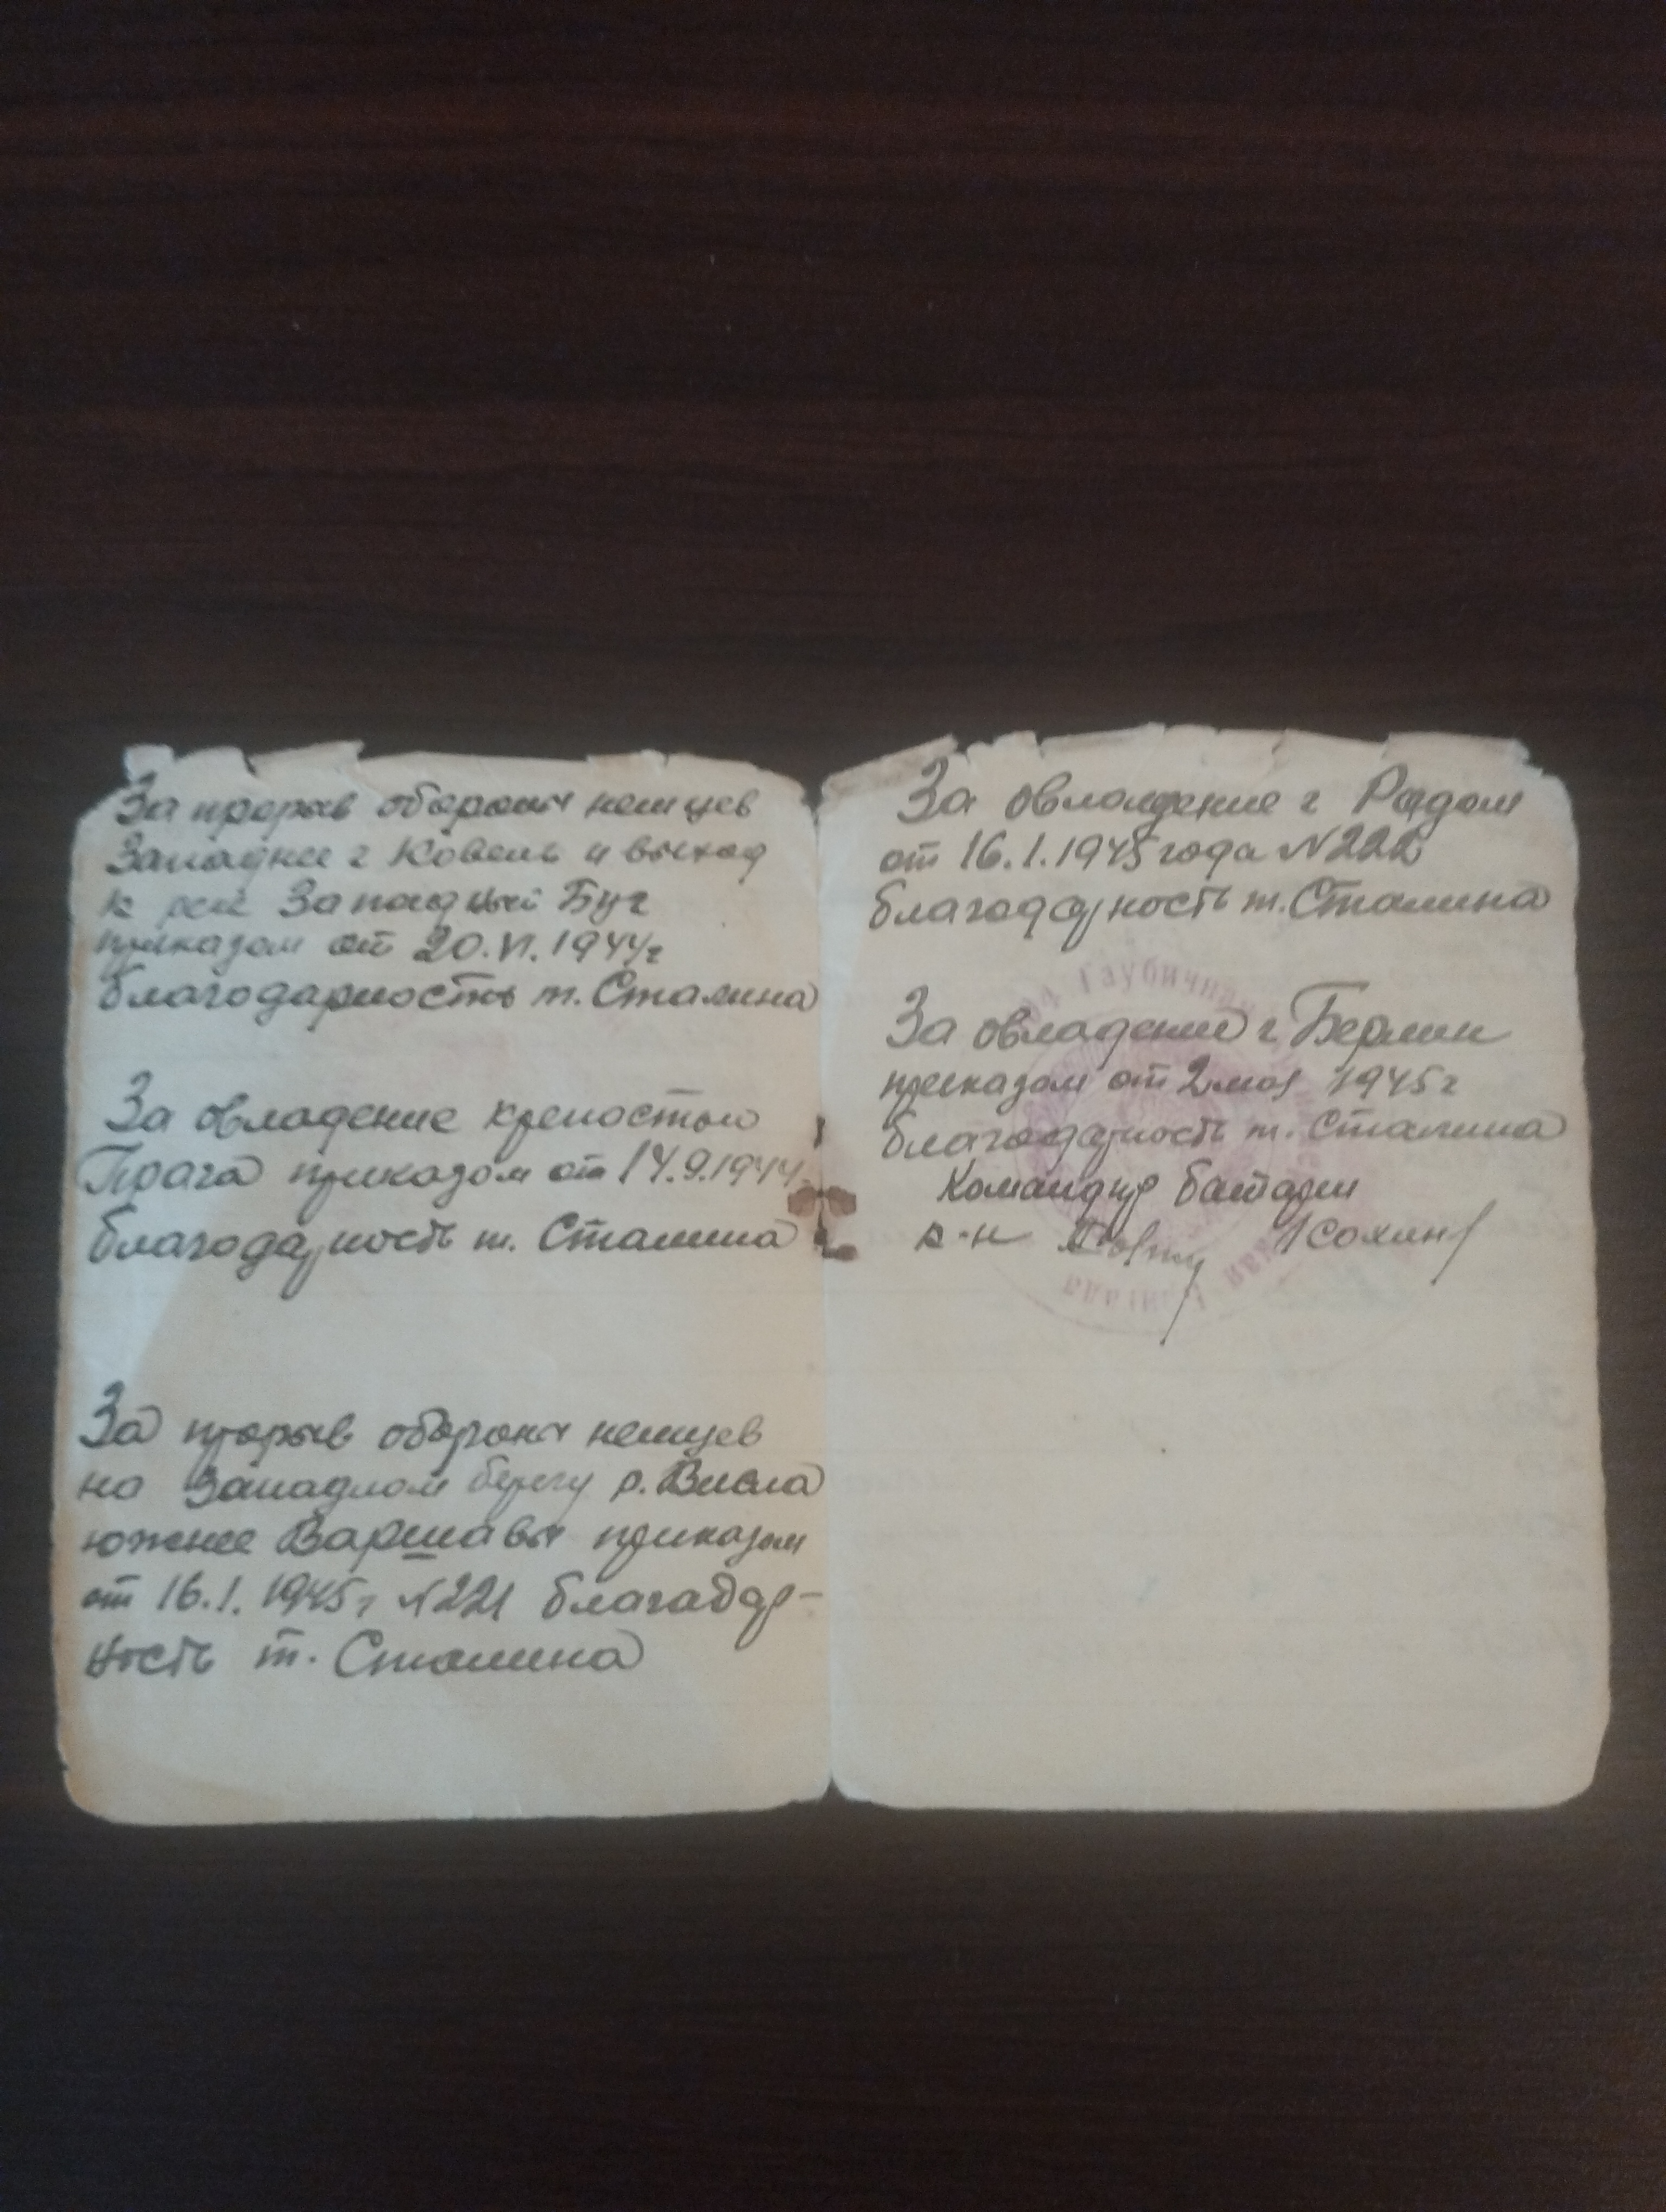 За прорыв обороны немцев
Западнее г Ковель и выход
к реке Западный Буг
приказом от 20.VI.1944г
благодарность т. Сталина
За овладение крепостью
Прага приказом от 14.9.1944.
благодарность т. Сталина
За прорыв обороны немцев
на Западном берегу р. Висла
южнее Варшавы приказом
от 16.1.1945г N221 благадар-
ность т. Сталина
За овладение г Радом
от 16.1.1945 года N222
благодарность т. Сталина
За овладение г. Берлин
приказом от 2 мая 1945г
благодарность т. Сталина
Командир батареи
к-н
Гаубичная
бригада